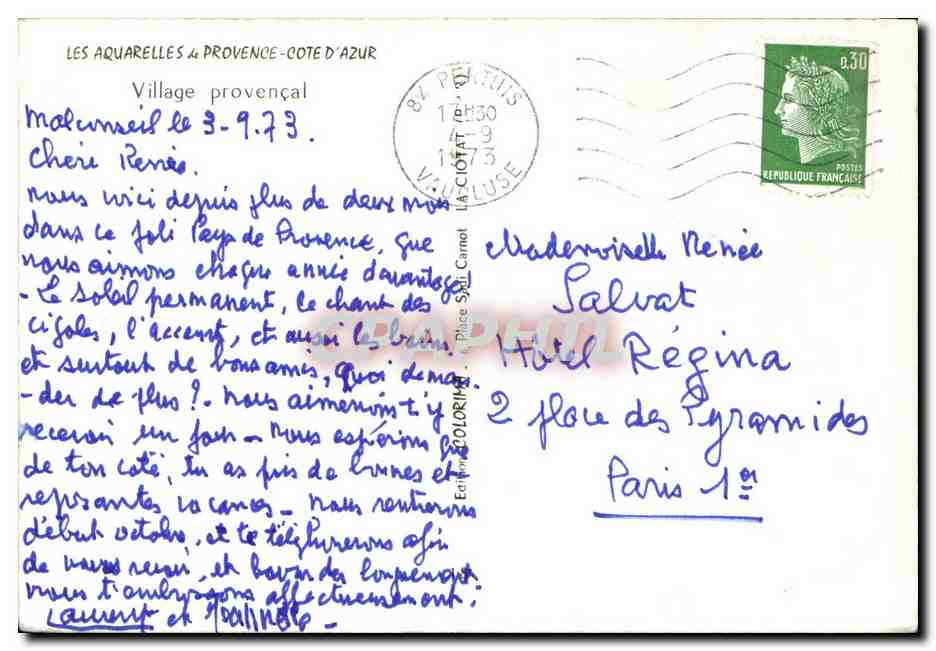 LES AQUARELLES de PROVENCE-COTE D'AZUR
Village provençal
Malconseil le 3-9.73.
Chère Renée.
nous voici depuis plus de deux mois
dans ce joli Pays de Provence, que
nous aimons chaque année davantage
- Le soleil permanent, le chant des
cigales, l'accent, et aussi les bains
et surtout de bons amis, quoi deman-
-der de plus ? - nous aimerions t'y
recevoir un jour - nous espérons que
de ton coté, tu as pris de bonnes et
reposantes vacances - nous rentrerons
début octobre, et te téléphonerons afin
de nous revoir, et bavarder longuement
nous t'embrassons affectueusement :
Laurent et
84 PERTUIS
17H30
-9
1973
VAUCLUSE
0,30
POSTES
REPUBLIQUE FRANÇAISE
Editions COLORIMA - Place Sadi Carnot LA CIOTAT
Mademoiselle Renée
Salvat
Hôtel Régina
2 place des Pyramides
Paris 1er
CPAPHIL